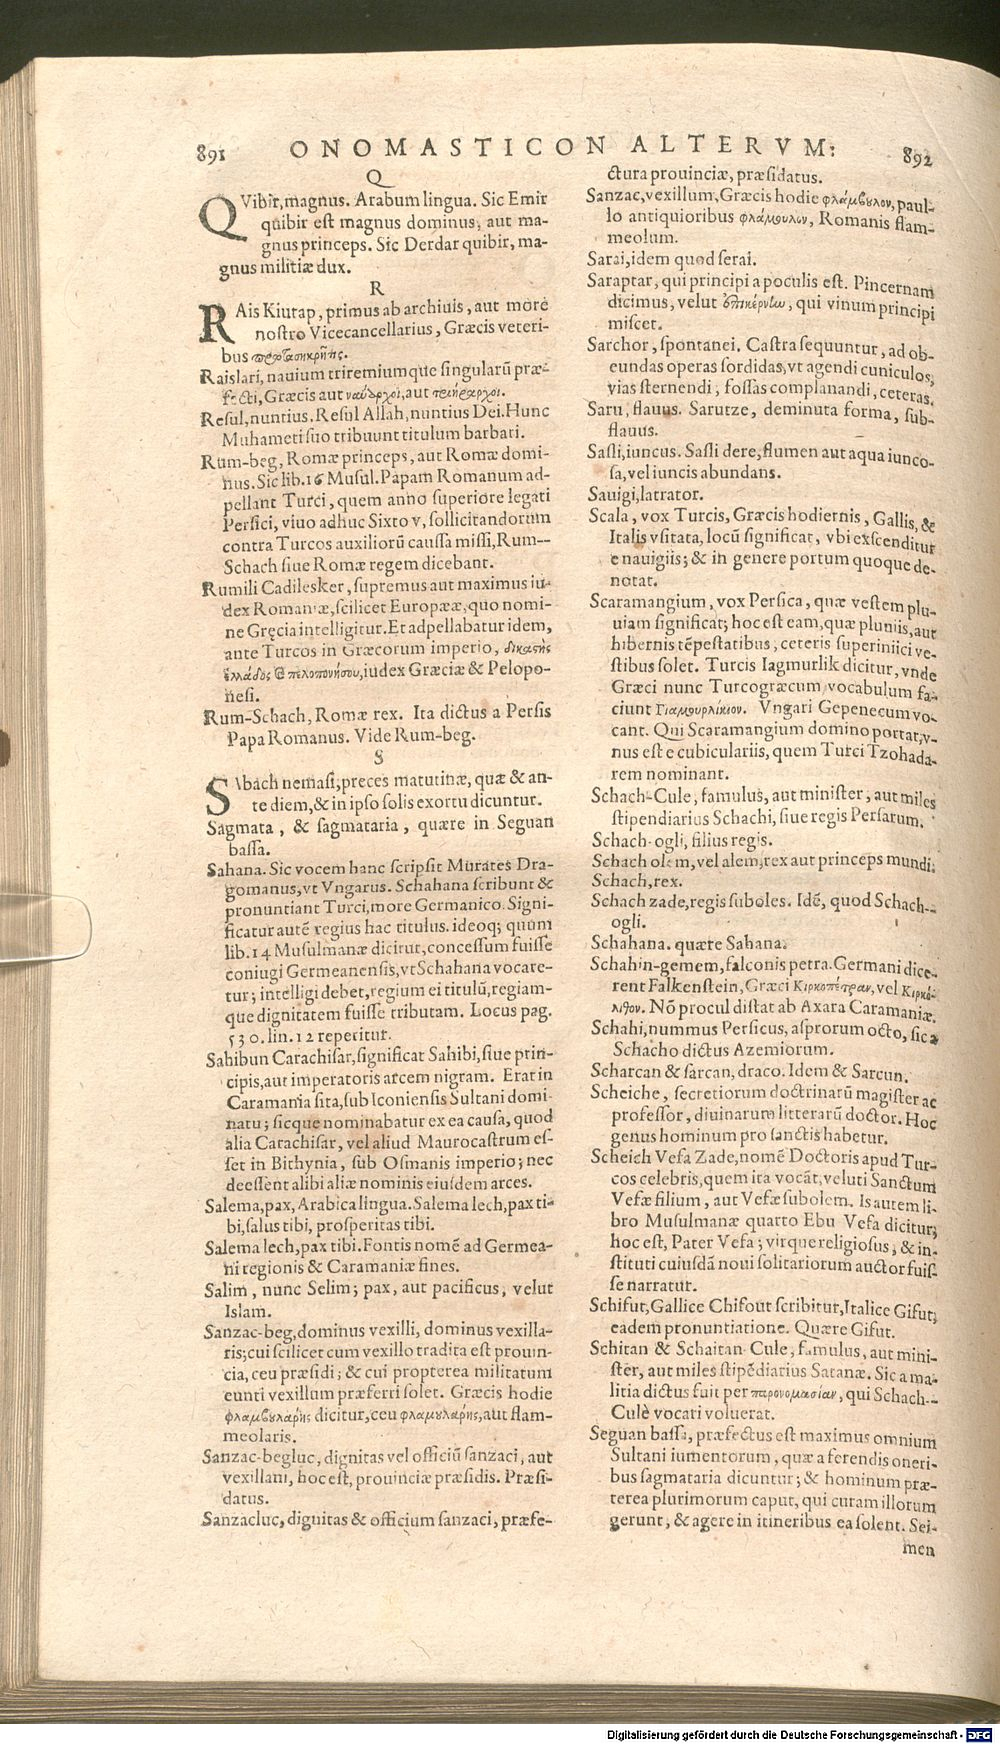 891 ONOMASTICON ALTERVM: 892
Q
QVibir, magnus. Arabum lingua. Sic Emir
quibir est magnus dominus, aut ma-
gnus princeps. Sic Derdar quibir, ma-
gnus militiæ dux.
R
RAis Kiutap, primus ab archiuis, aut more
nostro Vicecancellarius, Græcis veteri-
bus πρωτασηκρῆτης.
Raislari, nauium triremiumque singularū præ-
fecti, Græcis aut ναύαρχοι, aut τριήραρχοι.
Resul, nuntius. Resul Allah, nuntius Dei. Hunc
Muhameti suo tribuunt titulum barbari.
Rum-beg, Romæ princeps, aut Romæ domi-
nus. Sic lib. 16 Musul. Papam Romanum ad-
pellant Turci, quem anno superiore legati
Persici, viuo adhuc Sixto v, sollicitandorum
contra Turcos auxiliorū caussa missi, Rum--
Schach siue Romæ regem dicebant.
Rumili Cadilesker, supremus aut maximus iu-
dex Romaniæ, scilicet Europææ, quo nomi-
ne Gręcia intelligitur. Et adpellabatur idem,
ante Turcos in Græcorum imperio, δικαστὴς
ἑλλάδος & πελοπονήσου, iudex Græciæ & Pelopo-
nesi.
Rum-Schach, Romæ rex. Ita dictus a Persis
Papa Romanus. Vide Rum-beg.
S
SAbach nemasi, preces matutinæ, quæ & an-
te diem, & in ipso solis exortu dicuntur.
Sagmata, & sagmataria, quære in Seguan
bassa.
Sahana. Sic vocem hanc scripsit Murates Dra-
gomanus, vt Vngarus. Schahana scribunt &
pronuntiant Turci, more Germanico. Signi-
ficatur autē regius hac titulus. ideoq; quum
lib. 14 Musulmanæ dicitur, concessum fuisse
coniugi Germeanensis, vt Schahana vocare-
tur; intelligi debet, regium ei titulū, regiam-
que dignitatem fuisse tributam. Locus pag.
530. lin. 12 reperitur.
Sahibun Carachisar, significat Sahibi, siue prin-
cipis, aut imperatoris arcem nigram. Erat in
Caramania sita, sub Iconiensis Sultani domi-
natu; sicque nominabatur ex ea causa, quod
alia Carachisar, vel aliud Maurocastrum es-
set in Bithynia, sub Osmanis imperio; nec
deessent alibi aliæ nominis eiusdem arces.
Salema, pax, Arabica lingua. Salema lech, pax ti-
bi, salus tibi, prosperitas tibi.
Salema lech, pax tibi. Fontis nomē ad Germea-
ni regionis & Caramaniæ fines.
Salim, nunc Selim; pax, aut pacificus, velut
Islam.
Sanzac-beg, dominus vexilli, dominus vexilla-
ris; cui scilicet cum vexillo tradita est prouin-
cia, ceu præsidi; & cui propterea militatum
eunti vexillum præferri solet. Græcis hodie
φλαμβουλάρης dicitur, ceu φλαμουλάρης, aut flam-
meolaris.
Sanzac-begluc, dignitas vel officiū sanzaci, aut
vexillani, hoc est, prouinciæ præsidis. Præsi-
datus.
Sanzacluc, dignitas & officium sanzaci, præfe-
ctura prouinciæ, præsidatus.
Sanzac, vexillum, Græcis hodie φλάμβουλον, paul-
lo antiquioribus φλάμουλον, Romanis flam-
meolum.
Sarai, idem quod serai.
Saraptar, qui principi a poculis est. Pincernam
dicimus, velut ἐπικέρνιον, qui vinum principi
miscet.
Sarchor, spontanei. Castra sequuntur, ad ob-
eundas operas sordidas, vt agendi cuniculos,
vias sternendi, fossas complanandi, ceteras.
Saru, flauus. Sarutze, deminuta forma, sub-
flauus.
Sasli, iuncus. Sasli dere, flumen aut aqua iunco-
sa, vel iuncis abundans.
Sauigi, latrator.
Scala, vox Turcis, Græcis hodiernis, Gallis, &
Italis vsitata, locū significat, vbi exscenditur
e nauigiis; & in genere portum quoque de-
notat.
Scaramangium, vox Persica, quæ vestem plu-
uiam significat; hoc est eam, quæ pluuiis, aut
hibernis tēpestatibus, ceteris superiniici ve-
stibus solet. Turcis Iagmurlik dicitur, vnde
Græci nunc Turcogræcum vocabulum fa-
ciunt Γιαμουρλίκιον. Vngari Gepenecum vo-
cant. Qui Scaramangium domino portat, v-
nus est e cubiculariis, quem Turci Tzohada-
rem nominant.
Schach-Cule, famulus, aut minister, aut miles
stipendiarius Schachi, siue regis Persarum.
Schach-ogli, filius regis.
Schach olem, vel alem, rex aut princeps mundi.
Schach, rex.
Schach zade, regis suboles. Idē, quod Schach--
ogli.
Schahana. quære Sahana.
Schahin-gemem, falconis petra. Germani dice-
rent Falkenstein, Græci Κιρκοπέτραν, vel Κιρκό-
λιθον. Nō procul distat ab Axara Caramaniæ.
Schahi, nummus Persicus, asprorum octo, sic a
Schacho dictus Azemiorum.
Scharcan & sarcan, draco. Idem & Sarcun.
Scheiche, secretiorum doctrinarū magister ac
professor, diuinarum litterarū doctor. Hoc
genus hominum pro sanctis habetur.
Scheich Vefa Zade, nomē Doctoris apud Tur-
cos celebris, quem ita vocāt, veluti Sanctum
Vefæ filium, aut Vefæ subolem. Is autem li-
bro Musulmanæ quarto Ebu Vefa dicitur,
hoc est, Pater Vefa; vir que religiosus, & in-
stituti cuiusdā noui solitariorum auctor fuis-
se narratur.
Schifut, Gallice Chifout scribitur, Italice Gifut,
eadem pronuntiatione. Quære Gifut.
Schitan & Schaitan-Cule, famulus, aut mini-
ster, aut miles stipēdiarius Satanæ. Sic a ma-
litia dictus fuit per παρονομασίαν, qui Schach--
Cule vocari voluerat.
Seguan bassa, præfectus est maximus omnium
Sultani iumentorum, quæ a ferendis oneri-
bus sagmataria dicuntur; & hominum præ-
terea plurimorum caput, qui curam illorum
gerunt, & agere in itineribus ea solent. Sei-
men
Digitalisierung gefördert durch die Deutsche Forschungsgemeinschaft - DFG